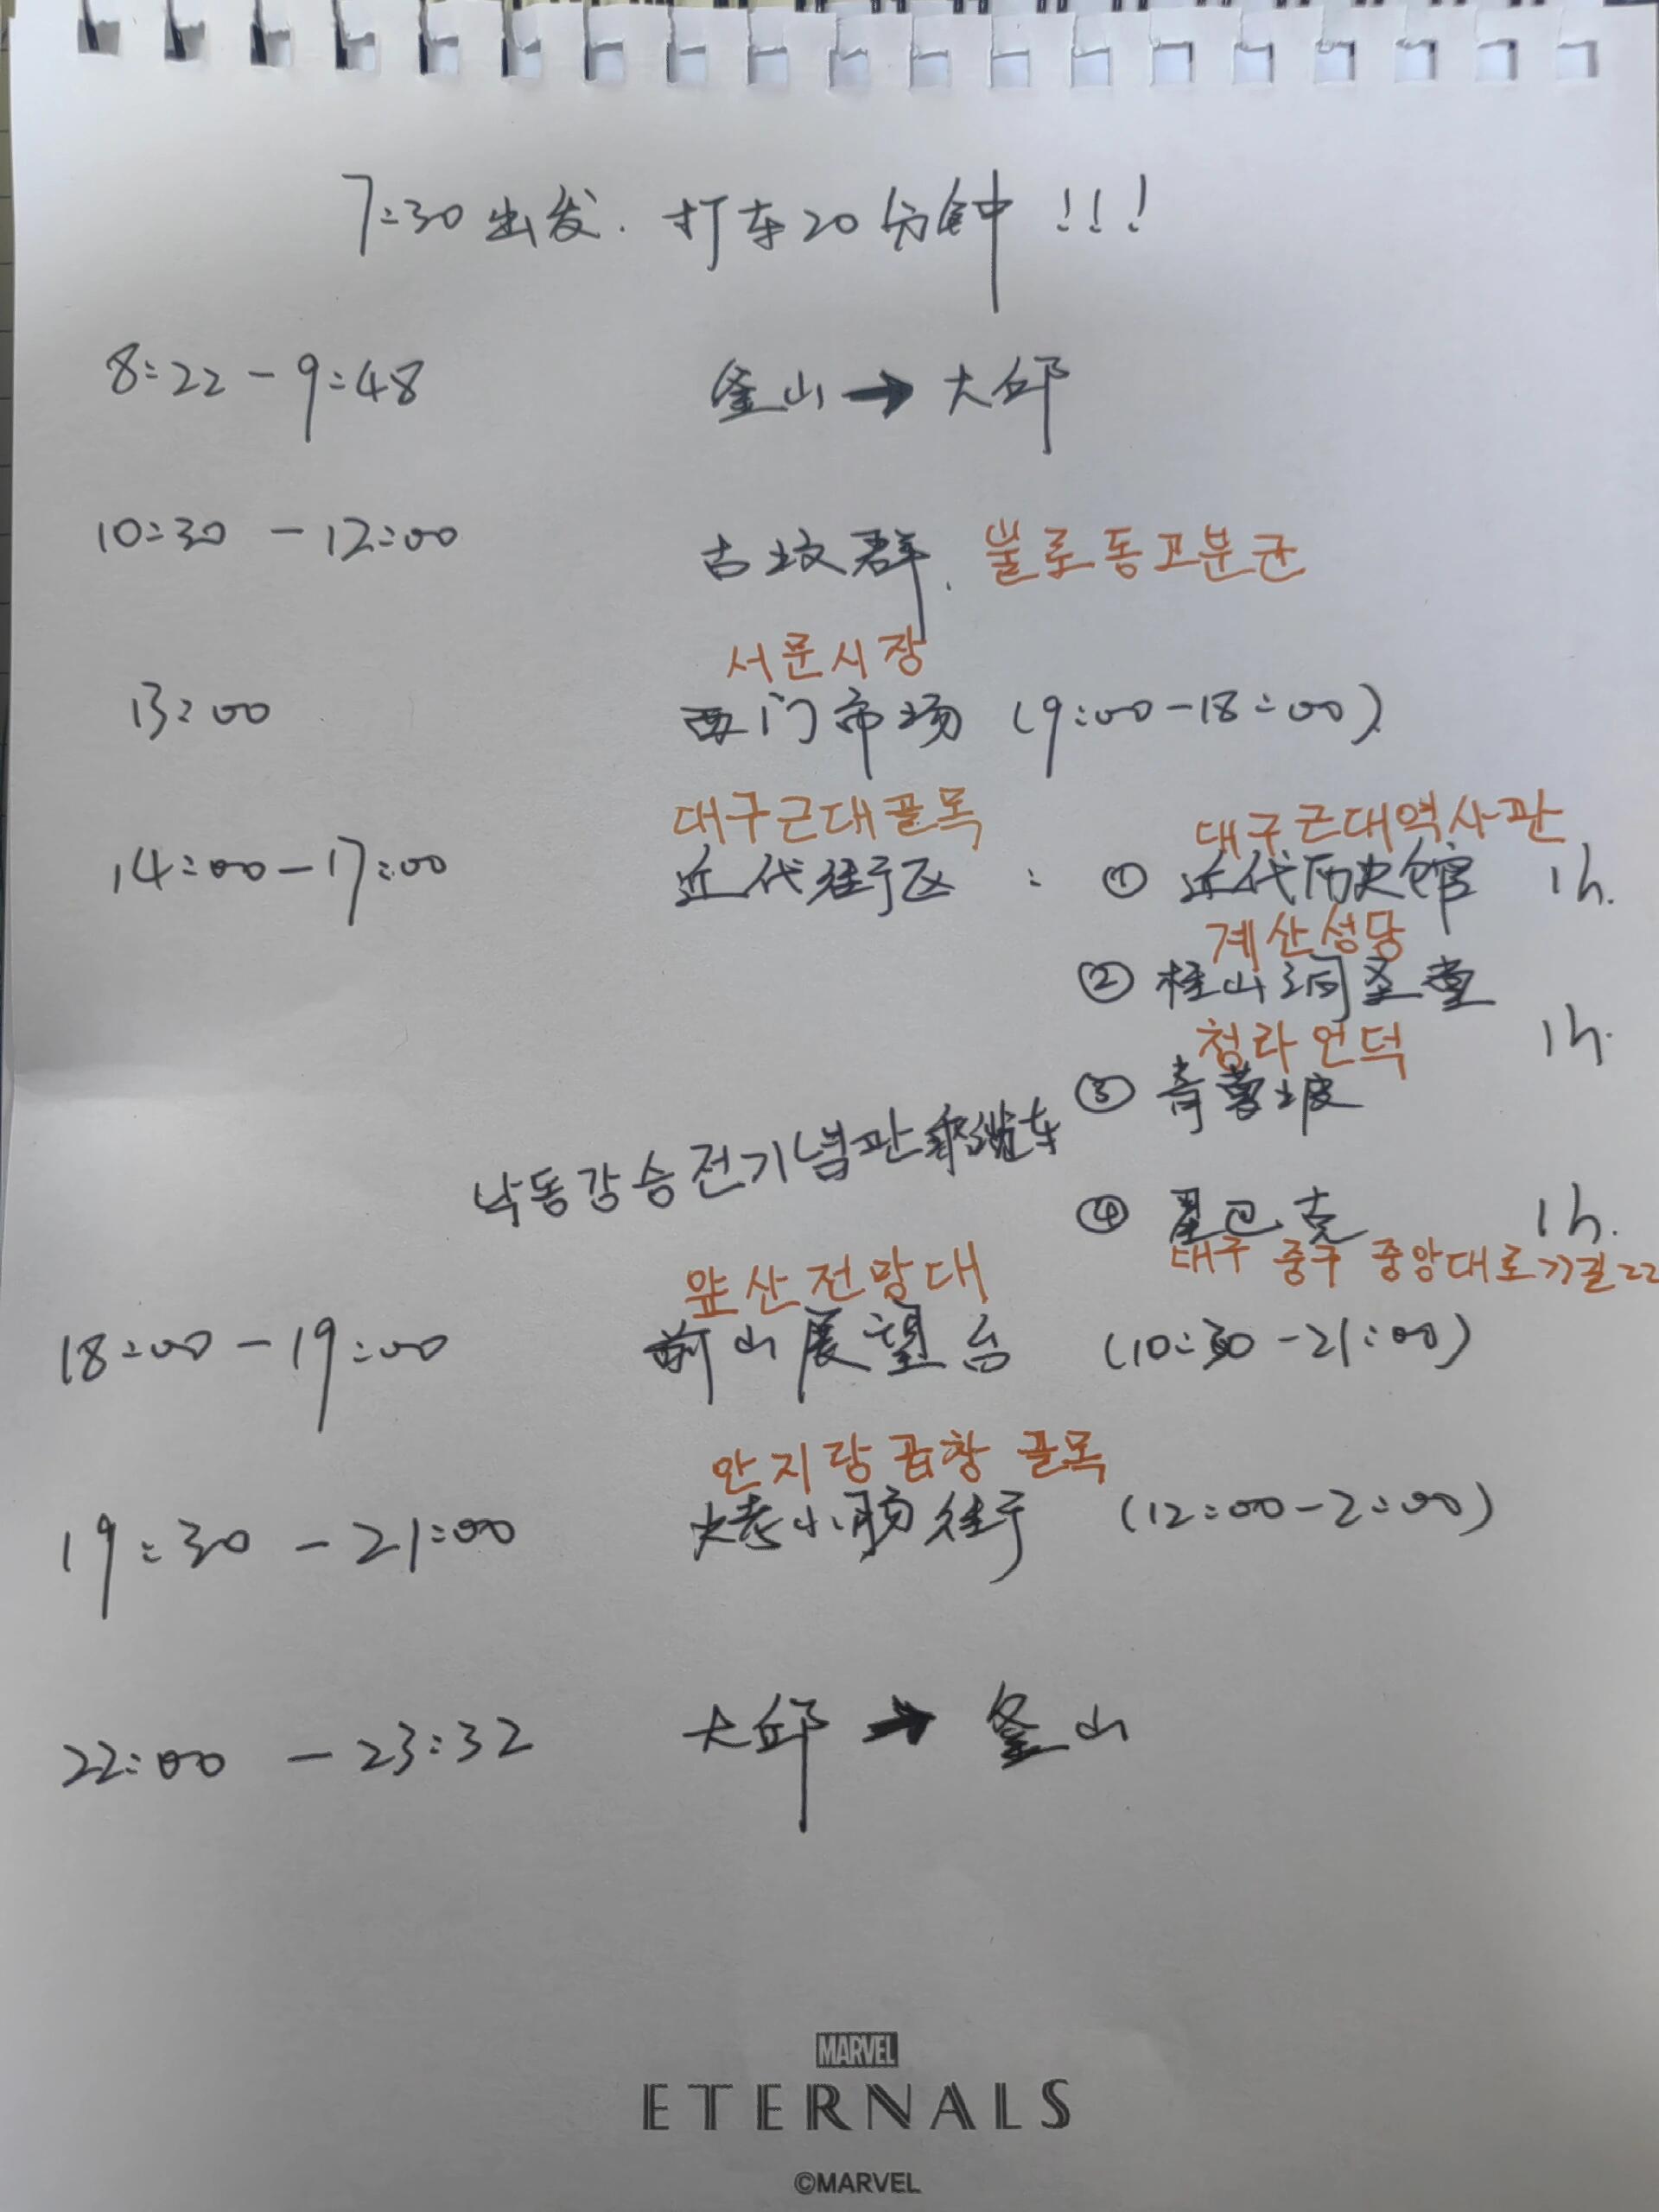 7:30出发. 打车20分钟!!!
8:22-9:48 釜山→大邱
10:30-12:00 古坟群. 불로동고분군
서문시장
13:00 西门市场 (9:00-18:00)
대구근대골목 대구근대역사관
14:00-17:00 近代街区: ① 近代历史馆 1h.
계산성당
② 桂山洞圣堂
청라언덕 1h.
③ 青萝坡
낙동강승전기념관 乘缆车
④ 星巴克 1h.
대구 중구 중앙대로77길22
앞산전망대
18:00-19:00 前山展望台 (10:30-21:00)
안지랑곱창 골목
19:30-21:00 烤小肠街 (12:00-2:00)
22:00-23:32 大邱→釜山
MARVEL
ETERNALS
©MARVEL